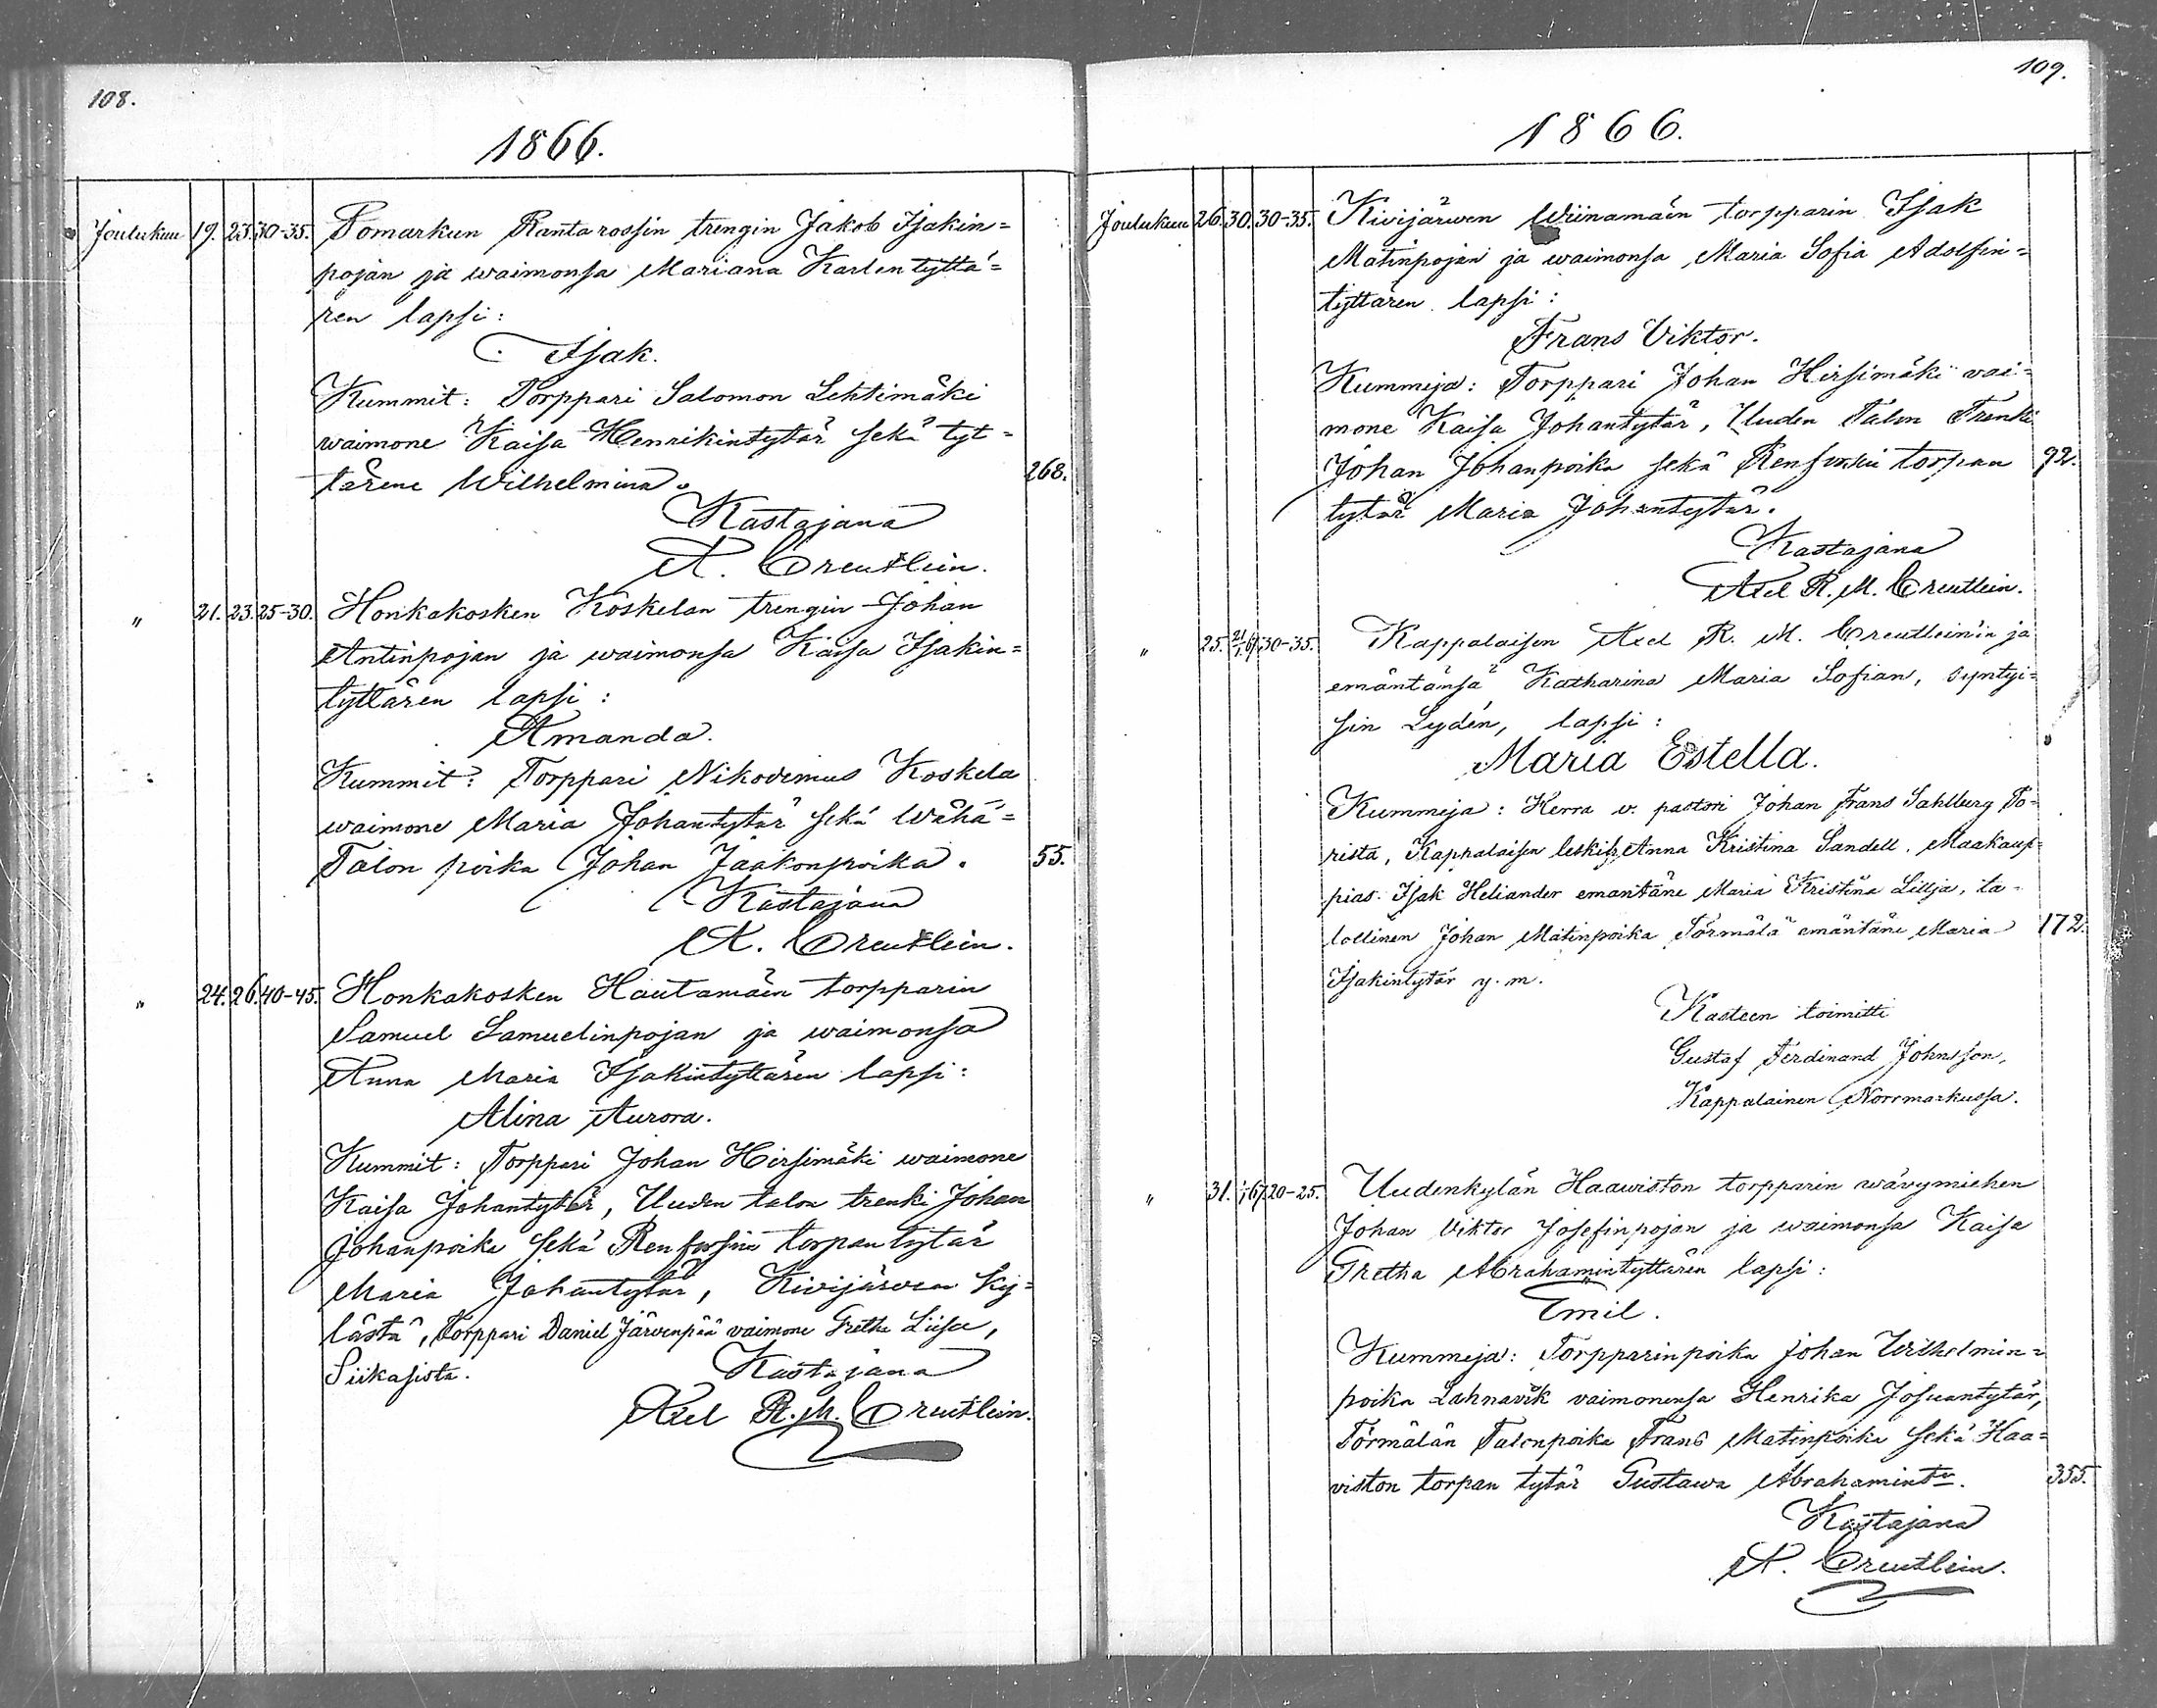 108.
1866.
Joulukuu 19. 23. 30-35. Pomarkun Rantarossin trengin Jakob Isakin=
pojan ja waimonsa Mariana Karlentyttä=
ren lapsi:
Isak.
Kummit: Torppari Salomon Lehtimäki
waimone Kaisa Henrikintytär sekä tyt=
tärene Wilhelmina. 268.
Kastajana
A. Creutlein.
" 21. 23. 25-30. Honkakosken Koskelan trengin Johan
Antinpojan ja waimonsa Kaisa Isakin=
tyttären lapsi:
Amanda.
Kummit: Torppari Nikodemus Koskela
waimone Maria Johantytär sekä Wähä=
Talon poika Johan Jaakonpoika. 55.
Kastajana
A. Creutlein.
" 24. 26. 40-45. Honkakosken Hautamäen torpparin
Samuel Samuelinpojan ja waimonsa
Anna Maria Isakintyttären lapsi:
Alina Aurora.
Kummit: Torppari Johan Hirsimäki waimone
Kaisa Johantytär, Uuden talon trenki Johan
Johanpoika sekä Renforsin torpan tytär
Maria Johantytär, Kivijärven ky=
lästä, Torppari Daniel Järvenpää vaimone Gretha Liisa,
Siikasista. Kastajana
Axel R. M. Creutlein.
109.
1866.
Joulukuu 26. 30. 30-35. Kivijärwen Wiinamäen torpparin Isak
Matinpojan ja waimonsa Maria Sofia Adolfin=
tyttären lapsi:
Frans Viktor.
Kummeja: Torppari Johan Hirsimäki vai=
mone Kaisa Johantytär, Uuden Talon Trenki
Johan Johanpoika sekä torpan 92.
tytär Maria Johantytär.
Kastajana
Axel R. M. Creutlein.
" 25. 21/1 67. 30-35. Kappalaisen Axel R. M. Creutlein'in ja
emäntänsä Katharina Maria Sofian, syntyi=
sin Lydén, lapsi:
Maria Estella.
Kummeja: Herra v. pastori Johan Frans Sahlberg Po=
rista, Kappalaisen leski Anna Kristina Sandell, Maakaup=
pias Isak Heliander emäntäne Maria Kristina Lillja, ta=
lollinen Johan Matinpoika Törmälä emäntäne Maria 172.
Isakintytär y. m.
Kasteen toimitti
Gustaf Ferdinand Johnsson,
Kappalainen Norrmarkussa.
" 31. 1/1 67. 20-25. Uudenkylän Haawiston torpparin wävymiehen
Johan Viktor Josefinpojan ja waimonsa Kaisa
Gretha Abrahamintyttären lapsi:
Emil.
Kummeja: Torpparinpoika Johan Wilhelmin=
poika Lahnavik vaimonensa Henrika Josuantytär,
Törmälän Talonpoika Frans Matinpoika sekä Haa=
viston torpan tytär Gustawa Abrahamintr. 355.
Kastajana
A. Creutlein.